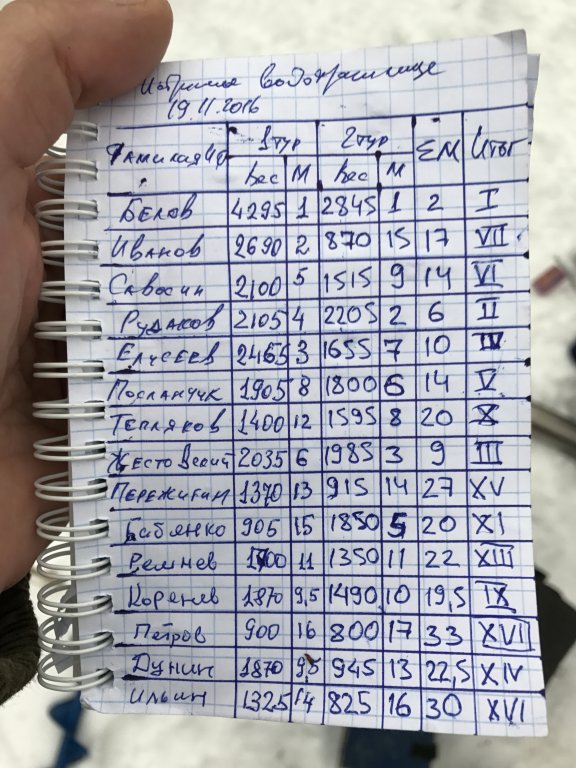 Истринское водохранилище
19.11.2016
Фамилия 1 тур 2 тур ΣМ Итог
Вес М Вес М
Белов 4295 1 2845 1 2 I
Иванов 2690 2 870 15 17 VII
Савосин 2100 5 1515 9 14 VI
Рудаков 2105 4 2205 2 6 II
Елисеев 2465 3 1655 7 10 IV
1905 8 1800 6 14 V
Тепляков 1400 12 1595 8 20 X
Жестовский 2035 6 1985 3 9 III
Пережигин 1370 13 915 14 27 XV
Бабянко 905 15 1850 5 20 XI
Ремнев 11 1350 11 22 XIII
Коренев 1870 9,5 1490 10 19,5 IX
Петров 900 16 800 17 33 XVII
Дунин 1870 9,5 945 13 22,5 XIV
Ильин 1325 14 825 16 30 XVI